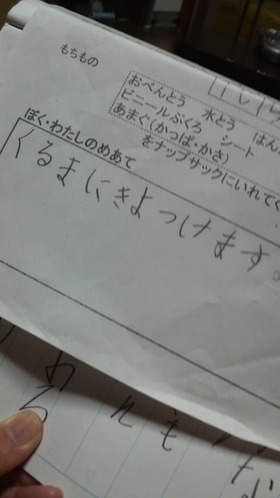 もちもの
おべんとう 水とう はん
ビニールぶくろ シート
あまぐ(かっぱ・かさ)
をナップサックにいれてく
ぼく・わたしのめあて
くるまにきよつけます。
める
れ
も